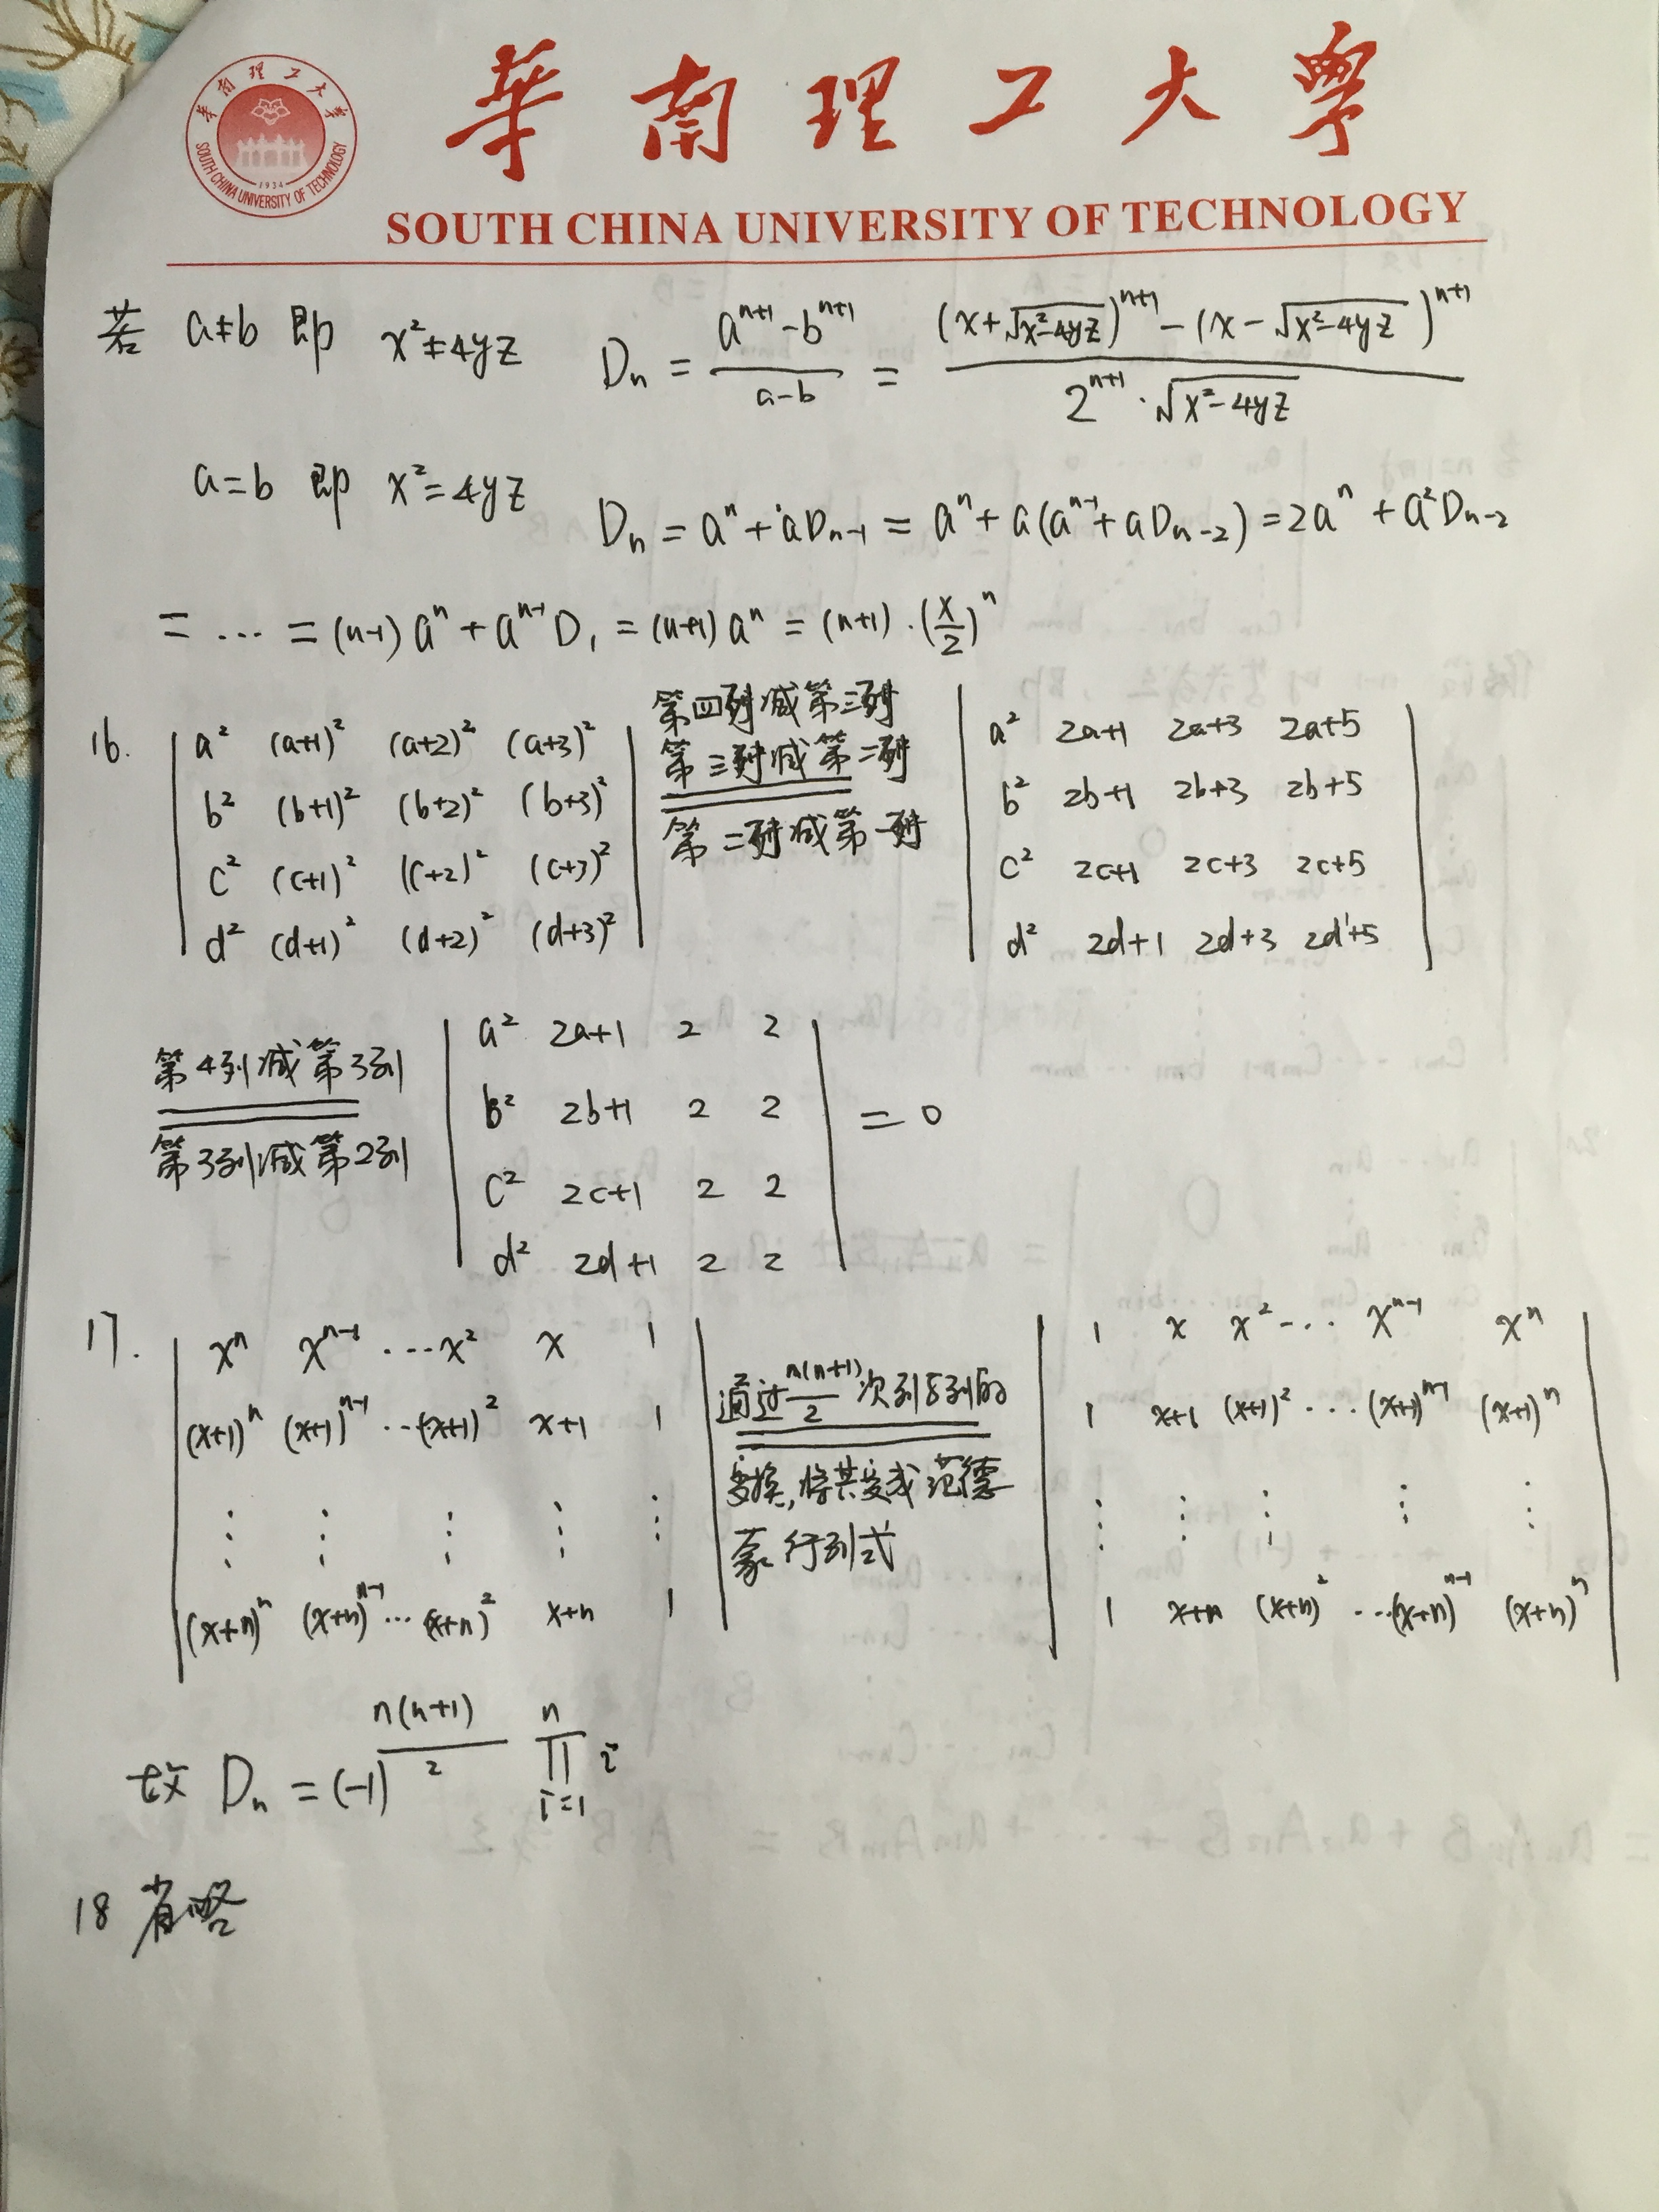 華南理工大學
SOUTH CHINA UNIVERSITY OF TECHNOLOGY
華南理工大学
SOUTH CHINA UNIVERSITY OF TECHNOLOGY
1934
若 a≠b 即 x²≠4yz Dₙ = (aⁿ⁺¹-bⁿ⁺¹)/(a-b) = ((x+√(x²-4yz))ⁿ⁺¹-(x-√(x²-4yz))ⁿ⁺¹)/(2ⁿ⁺¹·√(x²-4yz))
a=b 即 x²=4yz Dₙ = aⁿ+aDₙ₋₁ = aⁿ+a(aⁿ⁻¹+aDₙ₋₂) = 2aⁿ+a²Dₙ₋₂
= ··· = (n-1)aⁿ+aⁿ⁻¹D₁ = (n+1)aⁿ = (n+1)·(x/2)ⁿ
16.
| a² (a+1)² (a+2)² (a+3)² |
| b² (b+1)² (b+2)² (b+3)² |
| c² (c+1)² (c+2)² (c+3)² |
| d² (d+1)² (d+2)² (d+3)² |
第四列减第三列
第三列减第二列
第二列减第一列
| a² 2a+1 2a+3 2a+5 |
| b² 2b+1 2b+3 2b+5 |
| c² 2c+1 2c+3 2c+5 |
| d² 2d+1 2d+3 2d+5 |
第4列减第3列
第3列减第2列
| a² 2a+1 2 2 |
| b² 2b+1 2 2 | = 0
| c² 2c+1 2 2 |
| d² 2d+1 2 2 |
17.
| xⁿ xⁿ⁻¹ ··· x² x 1 |
| (x+1)ⁿ (x+1)ⁿ⁻¹ ··· (x+1)² x+1 1 |
| ⋮ ⋮ ⋮ ⋮ ⋮ |
| (x+n)ⁿ (x+n)ⁿ⁻¹ ··· (x+n)² x+n 1 |
通过n(n+1)/2次列与列的
变换,将其变成范德
蒙行列式
| 1 x x² ··· xⁿ⁻¹ xⁿ |
| 1 x+1 (x+1)² ··· (x+1)ⁿ⁻¹ (x+1)ⁿ |
| ⋮ ⋮ ⋮ ⋮ ⋮ |
| 1 x+n (x+n)² ··· (x+n)ⁿ⁻¹ (x+n)ⁿ |
故 Dₙ = (-1)^(n(n+1)/2) ∏ⁿᵢ₌₁ i
18 省略